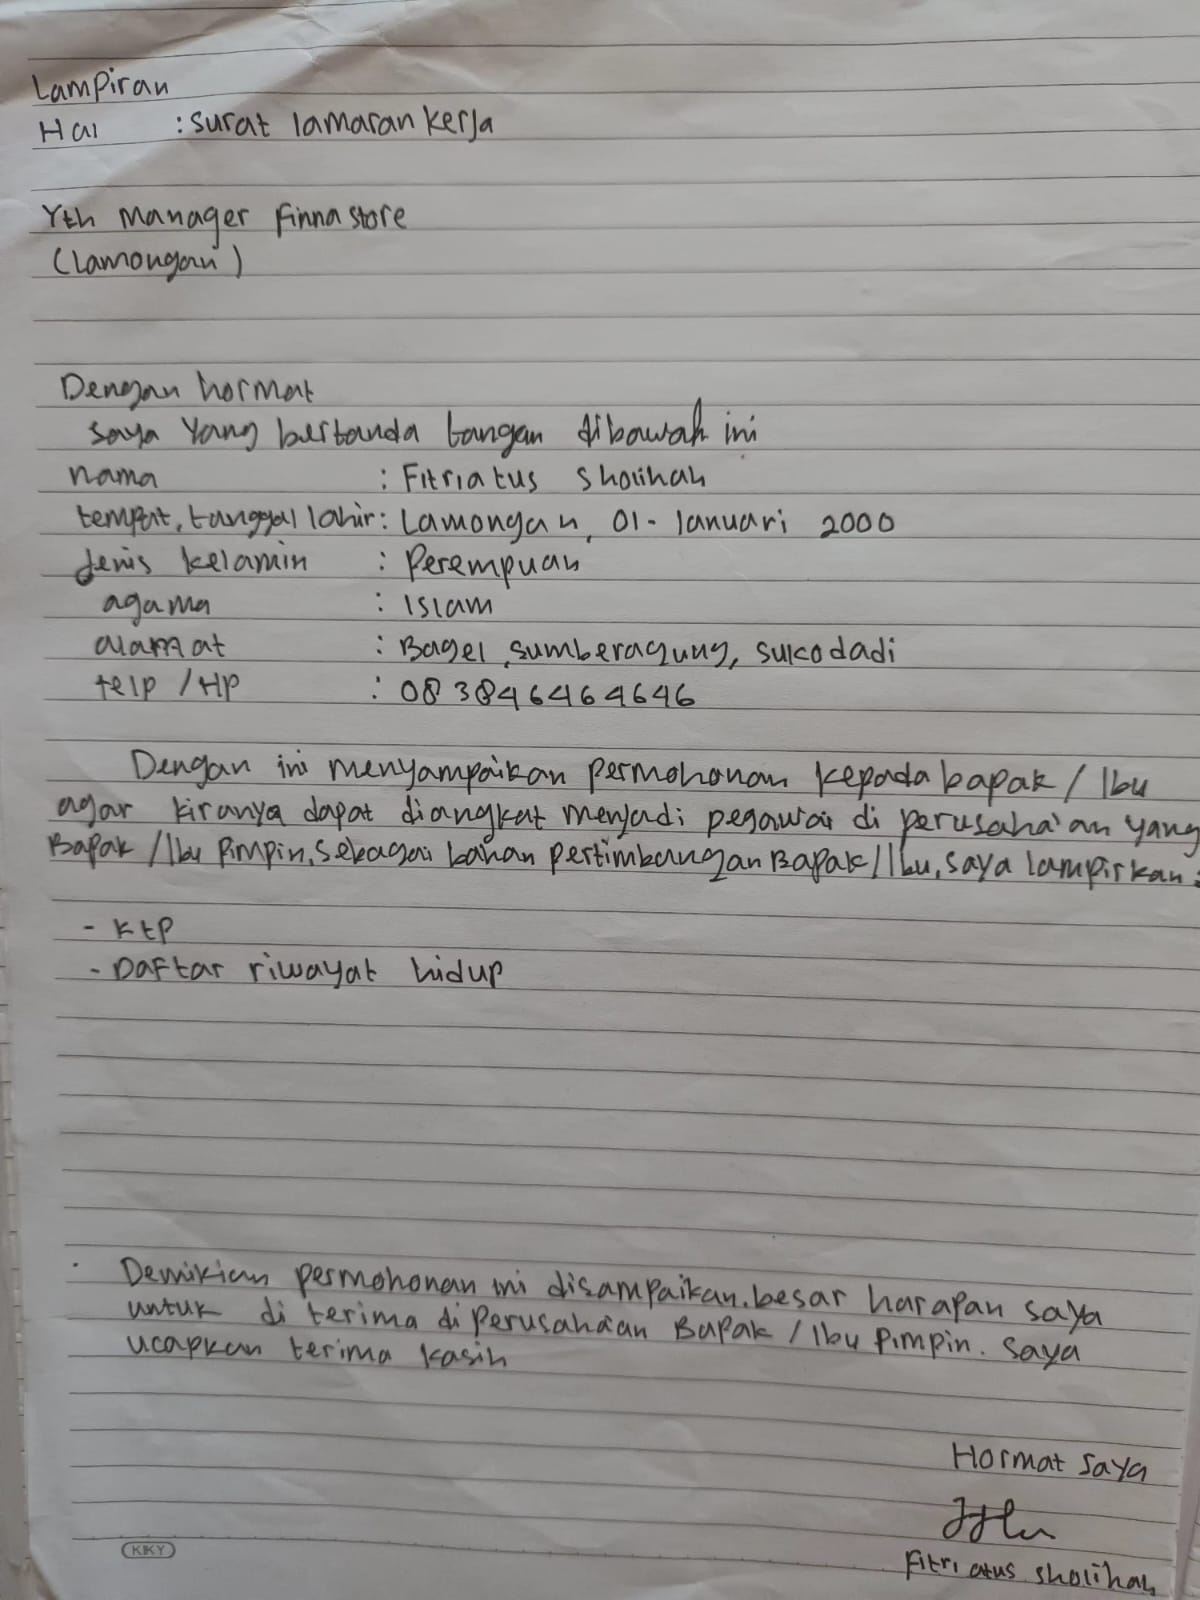 Lampiran
Hal : surat lamaran kerja
Yth Manager Finna store
(Lamongan)
Dengan hormat
saya Yang bertanda tangan dibawah ini
nama : Fitriatus Sholihah
tempat, tanggal lahir : Lamongan, 01 - Januari 2000
Jenis kelamin : Perempuan
agama : Islam
alamat : Bagel, sumberagung, sukodadi
telp / HP : 083846464646
Dengan ini menyampaikan permohonan kepada bapak / Ibu
agar kiranya dapat diangkat menjadi pegawai di perusaha'an yang
Bapak / Ibu Pimpin, sebagai bahan pertimbangan Bapak / Ibu, saya lampirkan :
- KtP
- Daftar riwayat hidup
Demikian permohonan ini disampaikan. besar harapan saya
untuk di terima di perusaha'an Bapak / Ibu Pimpin. saya
ucapkan terima kasih
Hormat saya
Fitriatus sholihah
KIKY